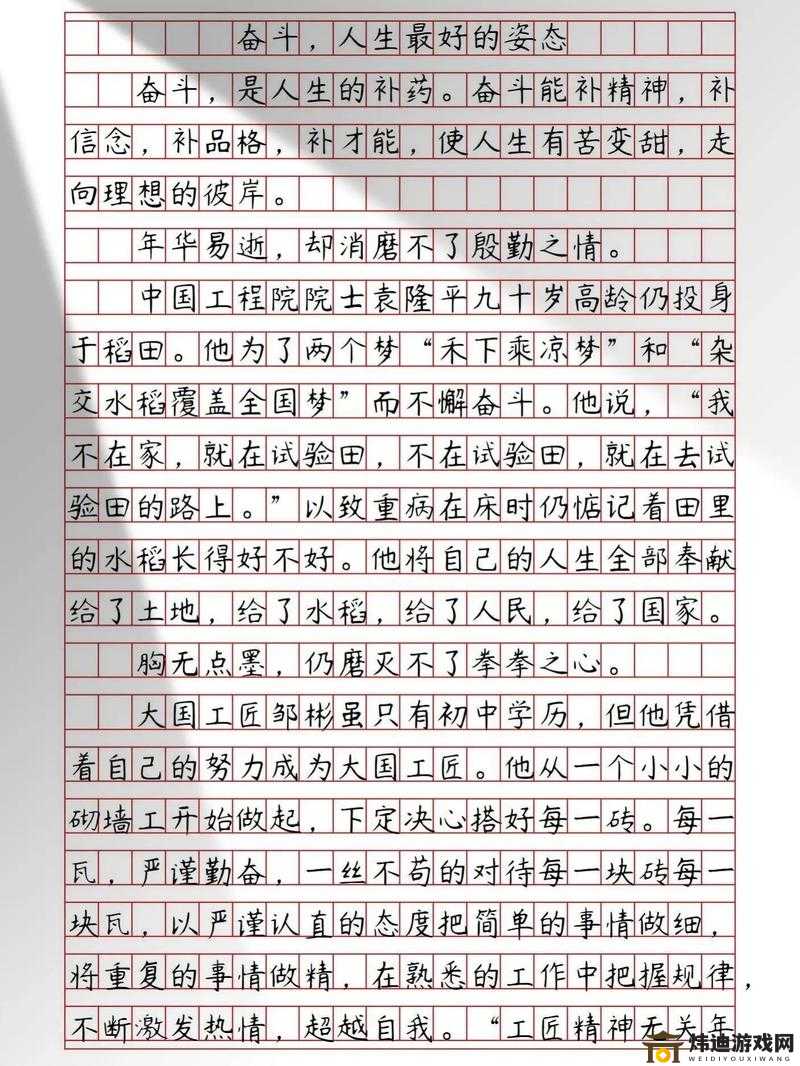 奋斗，人生最好的姿态
奋斗，是人生的补药。奋斗能补精神，补
信念，补品格，补才能，使人生有苦变甜，走
向理想的彼岸。
年华易逝，却消磨不了殷勤之情。
中国工程院院士袁隆平九十岁高龄仍投身
于稻田。他为了两个梦“禾下乘凉梦”和“杂
交水稻覆盖全国梦”而不懈奋斗。他说，“我
不在家，就在试验田，不在试验田，就在去试
验田的路上。”以致重病在床时仍惦记着田里
的水稻长得好不好。他将自己的人生全部奉献
给了土地，给了水稻，给了人民，给了国家。
胸无点墨，仍磨灭不了拳拳之心。
大国工匠邹彬虽只有初中学历，但他凭借
着自己的努力成为大国工匠。他从一个小小的
砌墙工开始做起，下定决心搭好每一砖。每一
瓦，严谨勤奋，一丝不苟的对待每一块砖每一
块瓦，以严谨认真的态度把简单的事情做细，
将重复的事情做精，在熟悉的工作中把握规律，
不断激发热情，超越自我。“工匠精神无关年
炜迪游戏网
WEIDIYOUXIWANG